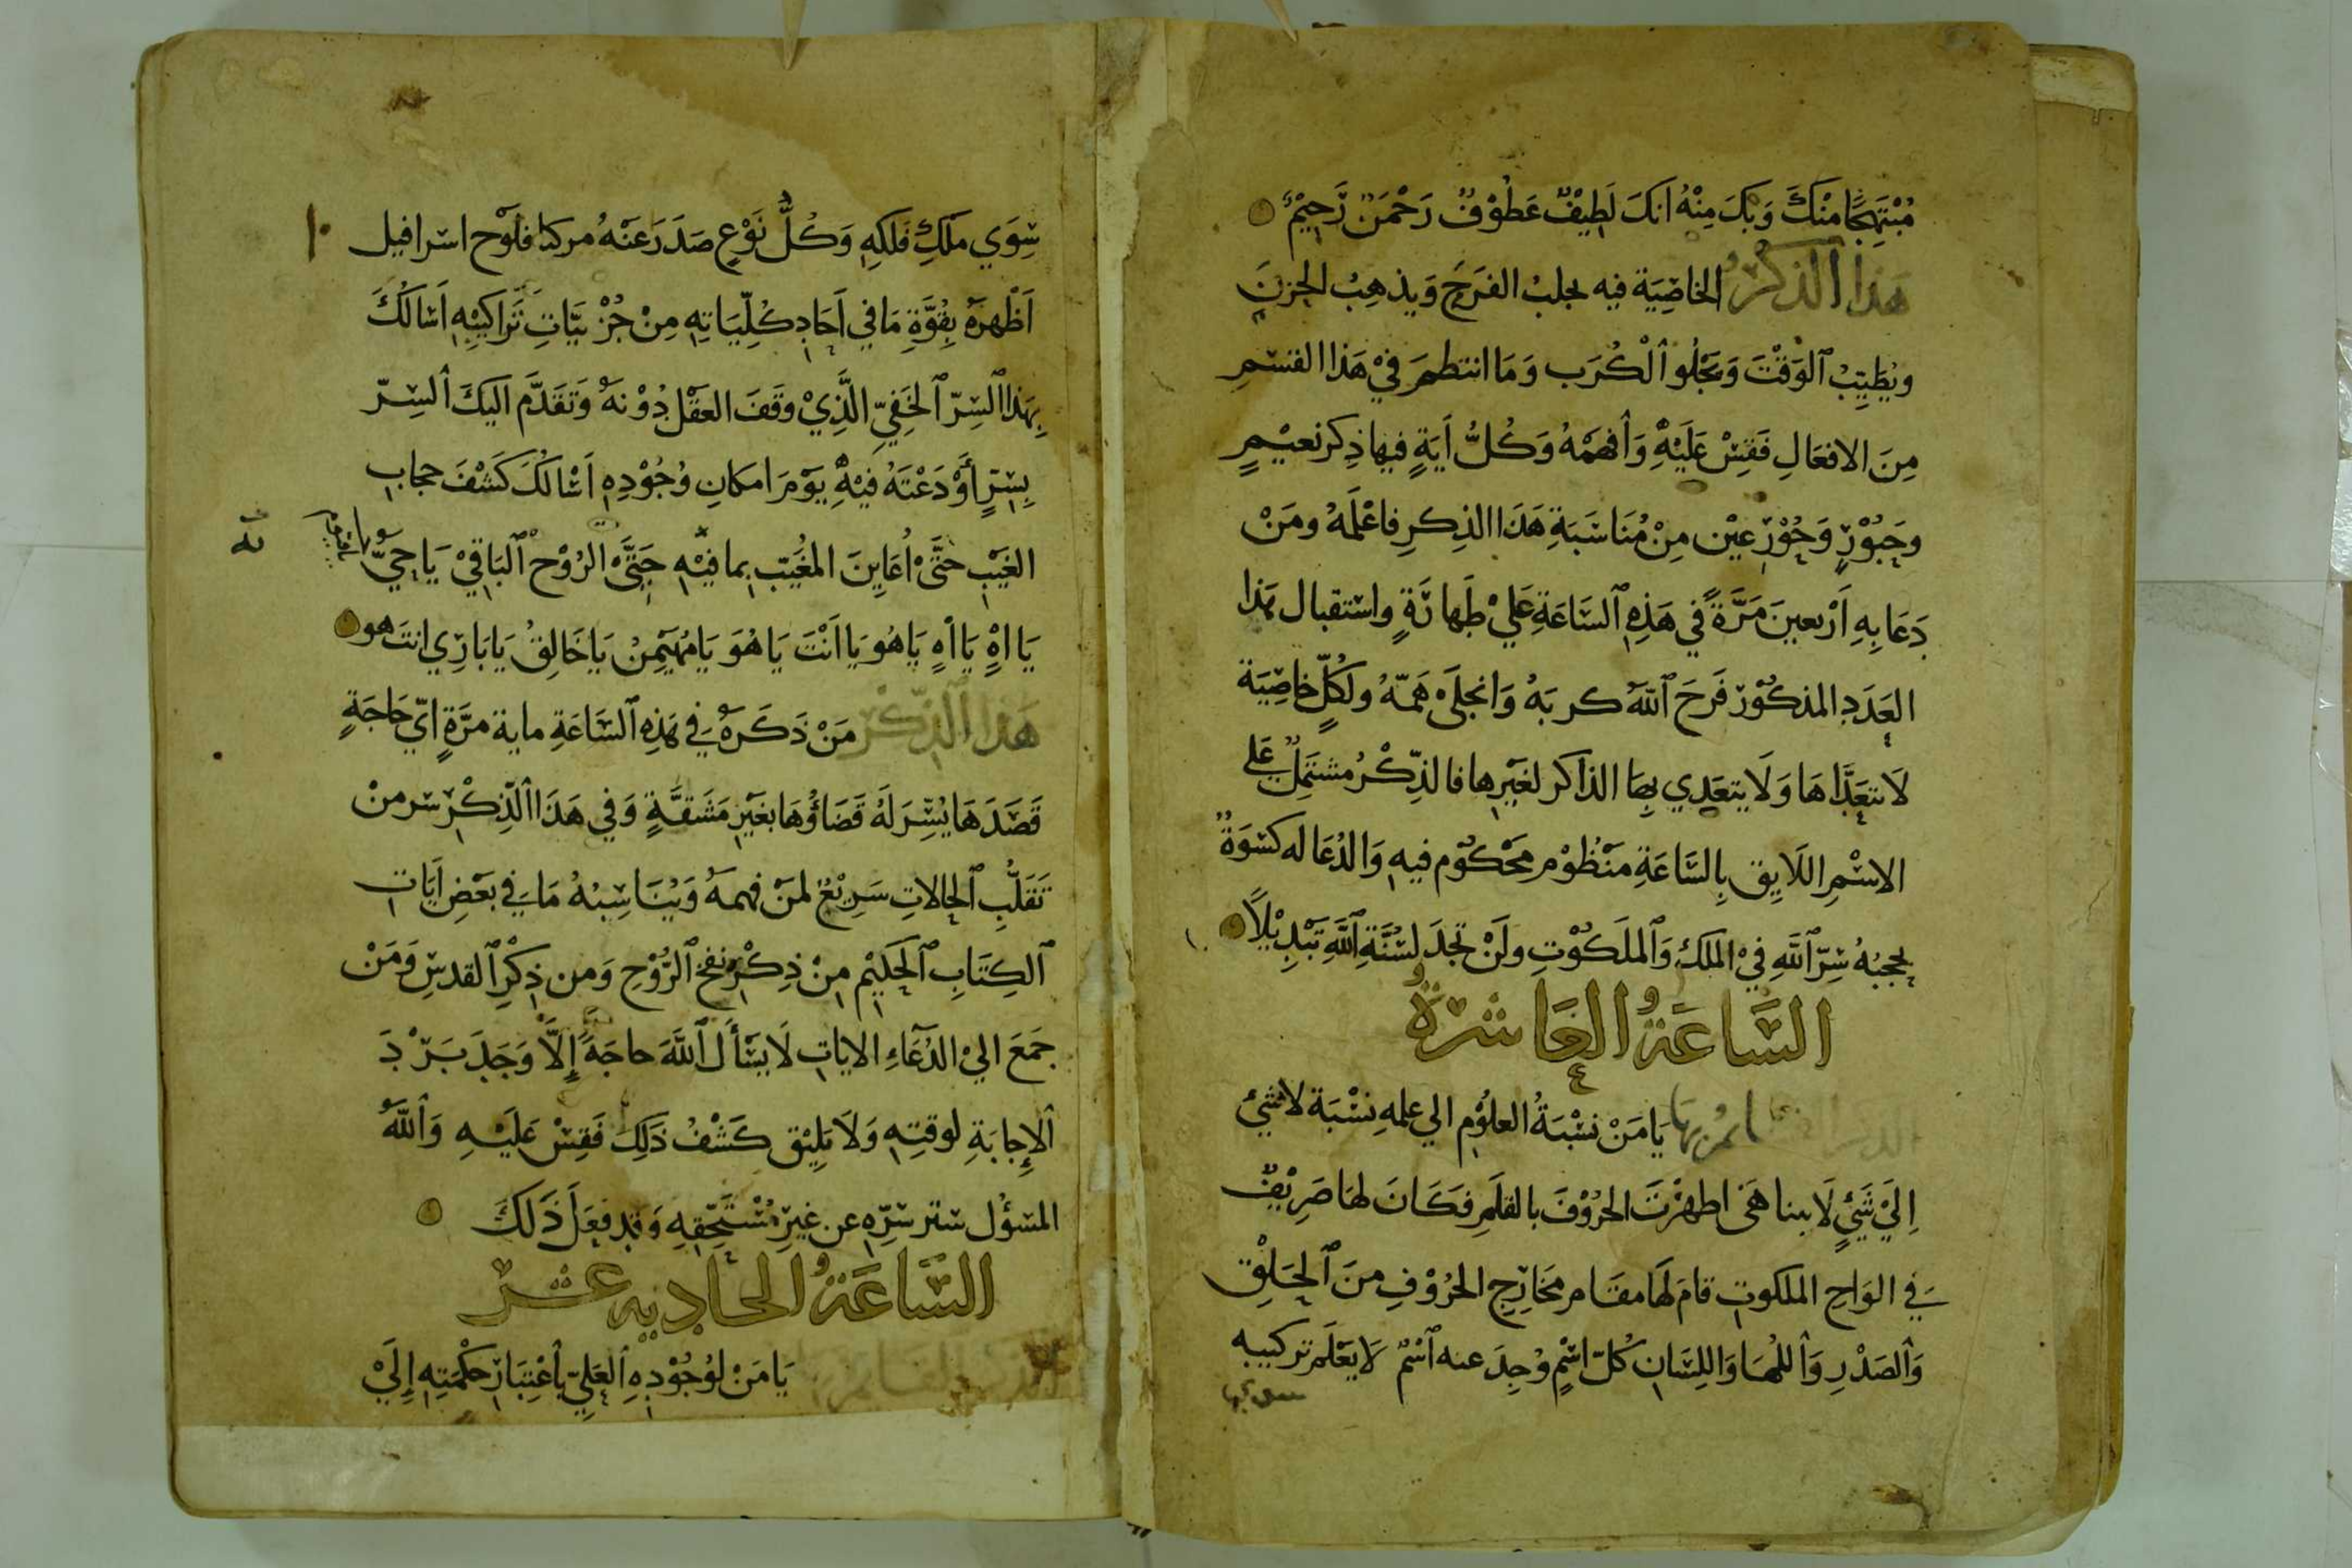 مُبْتَهِجًا مِنْكَ وَبِكَ مِنْهُ اَنَكَ لَطِيْفٌ عَطُوْفٌ رَحْمَنٌ رَّحِيْمٌ
هَذا الذِكْرُ الخاصِيَة فيه يجلبُ الفَرَحَ وَيذهِبُ الحزنَ
ويُطَيِّبُ الوَقْتَ وَيَجْلُو الْكُرَب وَمَا انتظمَ فيْ هَذا القسْمِ
مِنَ الافعَالِ فَقِسْ عَلَيْهِ وَأفهمْهُ وَكُلُّ اَيَةٍ فيها ذِكر نعيْمٍ
وحبُوْرٍ وَحُوْرٍ عيْن مِنْ مُنَاسَبَةِ هَذَا الذِكرِ فاعْلَمْهُ ومَنْ
دَعَا بِهِ اَرْبعينَ مَرَّةً في هَذِهِ السَاعَةِ عَليْ طَهارَةٍ واستقبال بهَذا
العَدَدِ المذكُوْر فَرَحَ اللهُ كربَهُ وَانجلَىْ هَمّهُ ولكُلٍّ خاصِيَة
لَا تتعَدَّاهَا وَلَا يتعَدي بِهَا الذاكر لغَيْرِها فالذِّكْرُ مشتَمِلٌ عَلى
الاسْمِ اللَايِق بِالسَّاعَةِ مَنْظُوْم محْكُوْم فيهِ وَالدُعَا له كسْوَةٌ
يحجبُهُ سِرّ اللَّهِ فيْ الملكْ وَالملَكُوْتِ ولَنْ تجدَ لسُنَّةِ اللَّهِ تَبْدِيْلًا
السَّاعَةُ العَاشرَة
يَا مَنْ نسْبَةُ العلُوْم الي علمهِ نسْبَة لا شَيْءٍ
اِلَيْ شَيْءٍ لَا يتناهَى اظهرْتَ الحُرُوْفَ بالقلَمِ فكَانَ لهَا صَرِيْفٌ
في الوَاحِ الملكوتِ قامَ لهَا مقَام مخَارِجِ الحرُوْفِ مِنَ الحَلِقْ
وَالصَدْرِ وَاللُهَا وَاللِسَانِ كُلّ اسْمٍ وُجِدَ عنه اسْمٌ لَا يعْلَم تركيبه
سوي
سِوَي مَلَكِ فَلَكِهِ وَكُلُّ نَوْعٍ صَدَرَ عَنْهُ مركبا فلَوْح اسرافيل
اَظْهرَهُ بِقُوَّةِ مَا في اَحَادِ كُلِّيَاتِهِ مِنْ جُزْئيَّاتِ تَرَاكيْبِهِ اَسْالُكَ
بِهَذا السِرّ الخَفِيّ الَّذِيْ وقَفَ العقْل دُوْنَهُ وَتَقَدَّم اليكَ السِرّ
بِسِرٍّ أَوْدَعْتَهُ فيْهِ يَوْمَ امكانِ وُجُوْدِهِ اَسْالُكَ كَشْفَ حجابِ
الغَيْبِ حتَّىْ اُعَايِنَ المغَيّب بما فيْهِ حَتَّىْ الرُوْح البَاقيْ يَا حيّ
يَا اهٍ يَا اهٍ يَا هُو يَا اَنْتَ يَا هُوَ يَا مُهَيْمِنُ يَا خَالِقُ يَا بَارِي انتَ هو
هَذا الذِّكْر مَنْ ذَكَرَهُ في هَذِهِ السَّاعَةِ ماية مَرَّةٍ ايّ حَاجَةٍ
قَصَدَهَا يُسِّرَ لَهُ قَضَاؤُهَا بغَيْرِ مَشَقَّةٍ وَفي هَذَا الذِكْرِ سر منْ
تَقَلُّبِ الحالاتِ سَرِيْعٌ لمَنْ فهمَهُ وَيُنَاسِبُهُ مَا في بعْضِ اَيَاتِ
الكِتَابِ الحَكِيْم مِنْ ذِكْرِ نفخ الرُّوْحِ وَمن ذِكْرِ القدسِ وَمَنْ
جمَعَ اليْ الدُعَاءِ الاياتِ لَا يسْأَل اللَّهَ حاجَةً إِلَّا وَجَدَ بَرْدَ
الإِجابَةِ لوقتِهِ وَلَا يَلِيْق كَشْفُ ذَلِكَ فَقِسْ عَلَيْهِ وَاللَّهُ
المسؤُل ستر سِرِّهِ عن غيرِ مُسْتَحِقّهِ وَقد فعَلَ ذَلكَ
السَّاعَةُ الحاديه عشر
يَا مَنْ لوُجُوْدِهِ العَلِيّ بأعْتِبَارِ حكْمَتِهِ إِلَيْ